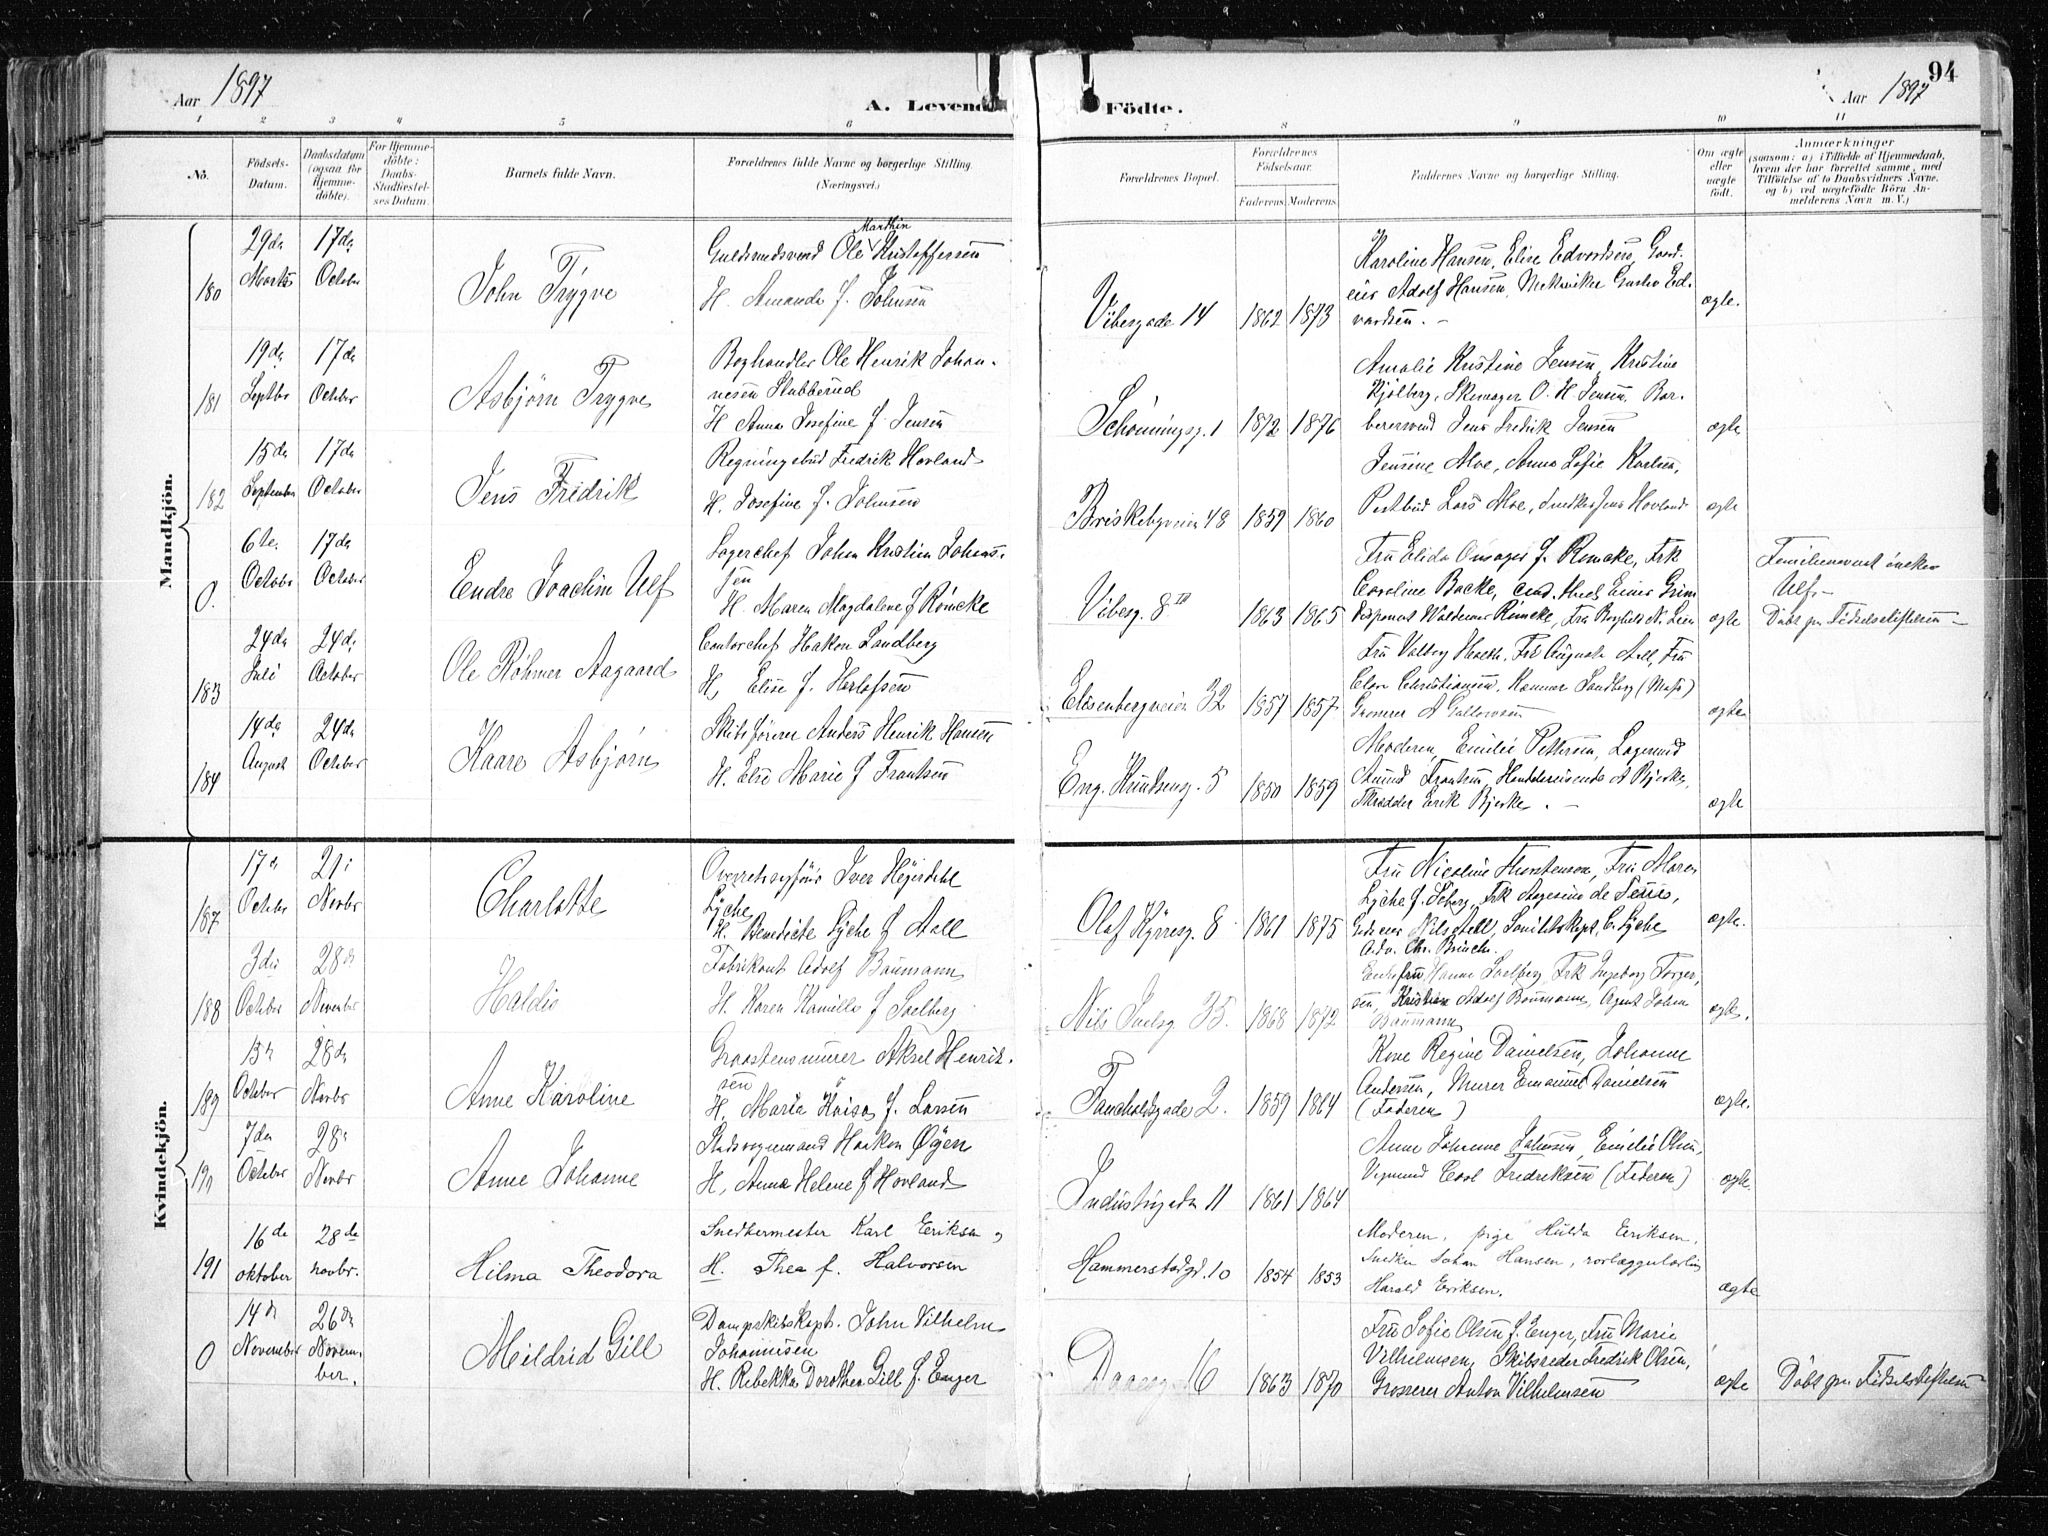 Aar 1897
A. Levende Födte.
Aar 1897
94
1 2 3 4 5 6 7 8 9 10 11
No.
Födsels-Datum.
Daabsdatum (ogsaa for Hjemmedöbte).
For Hjemmedöbte: Daabs-Stadfæstelses Datum.
Barnets fulde Navn.
Forældrenes fulde Navne og borgerlige Stilling. (Næringsvei.)
Forældrenes Bopæl.
Forældrenes Födselsaar.
Faderens. Moderens.
Faddernes Navne og borgerlige Stilling.
Om ægte eller uægte födt.
Anmærkninger (saasom: a) i Tilfælde af Hjemmedaab, hvem der har forrettet samme, med Tilföielse af to Daabsvidners Navne. og b) ved uægtefödte Börn Anmelderens Navn m. V.)
Mandkjön.
180 29de Marts 17de October
John Trygve
Guldsmedsvend Ole Marthin Kristoffersen
H. Amanda f. Johnsen
Vibesgade 14 1862 1873
Karoline Hansen, Elise Edvardsen, Gaard-
eier Adolf Hansen, Mekaniker Gustav Ed-
vardsen. -
ægte.
181 19de Septbr 17de October
Asbjörn Trygve
Boghandler Ole Henrik Johan-
nesen Stubberud
H Anna Josefine f. Jensen
Schönningsg. 1 1872 1876
Amalie Kristine Jensen, Kristine
Kjölberg, Skomager O. H. Jensen, Bar-
berersvend Jens Fredrik Jensen
ægte
182 15de September 17de October
Jens Fredrik
Regningsbud Fredrik Hovland
H. Josefine f. Johnsen
Briskebyveien 48 1859 1860
Jensine Moe, Anna Sofie Karlsen,
Postbud Lars Moe, Snedker Jens Hovland
ægte
0. 6te October 17de October
Endre Joachim Ulf
Lagerchef Johan Kristian Johans-
sen
H. Maren Magdalene f Römcke
Vibesg. 8 1863 1865
Fru Elida f. Römcke, Frk
Caroline Backe, Einar
Disponent Waldemar Römcke,
ægte
Familienavnet önskes
Ulf. -
Döbt pr Födselsstiftelsen -
183 24de Juli 24de October
Ole Röhmer Aagaard
Contorchef Hakon Sandberg
H, Elise f. Herlofsen
Elisenbergveien 32 1857 1857
Fru Valborg Fru Augusta Aall, Fru
Clara Christiansen, Sandberg (Moss)
Grosserer A Gulowsen
ægte
184 14de August 24de October
Kaare Asbjörn
Skibsförer Anders Henrik Hansen
H. Elise Marie f Frantsen
Eng. Knudseng. 5 1850 1859
Moderen, Emilie Pettersen, Lagermd
Amund Frantsen, Handelsreisende A Bjerke,
Skrædder Erik Bjerke. -
ægte
Kvindekjön.
187 17de October 21de Novbr
Charlotte
Overretssagförer Iver Heyerdahl
Lyche
H. Benedicte Lyche f Aall
Olaf Kyrresg. 8 1861 1875
Fru Nicoline Thorstensen, Fru Maren
Lyche f. , Frk de
Nils Aall, C. Lyche
Adv. Chr. Bruch.
ægte.
188 3die October 28de November
Haldis
Fabrikant Adolf Baumann
H. Karen Kamilla f Soelberg
Nils Juelsg 35. 1868 1872
Enkefru Hanna Soelberg, Frk Ingeborg Torger-
sen, Kristian Adolf Baumann, Agent Johan
Baumann
ægte.
189 15de October 28de Novbr
Anne Karoline
Graastensmurer Aksel Henrik-
sen
H, Maria Kaisa f. Larsen
Fauchaldsgade 2. 1859 1864
Kone Regine Danielsen, Johanne
Andersen, Murer Emanuel Danielsen
(Faderen)
ægte.
190 7de October 28de Novbr
Anne Johanne
Stadsvognmand Haakon Öyen
H, Anna Helene f Hovland
Industrigaden 11 1861 1864
Anne Johanne Johnsen, Emilie Olsen,
Vognmand Carl Fredriksen (Faderen)
ægte.
191 16de oktober 28de novbr.
Hilma Theodora
Snedkermester Karl Eriksen,
H. Thea f. Halvorsen
Hammerstadgd. 10 1854 1853
Moderen, pige Hulda Eriksen,
Snedker Johan Hansen, rörlæggerlærling
Harald Eriksen.
ægte
0 14de November 26de November.
Mildrid Gill
Dampskibskapt. John Vilhelm
Johannesen
H. Rebekka Dorothea Gill f. Enger
Daasg 16 1863 1870
Fru Sofie Olsen f. Enger, Fru Marie
Vilhelmsen, Skibsreder Fredrik Olsen,
Grosserer Anton Vilhelmsen
ægte
Döbt pr Födselsstiftelsen